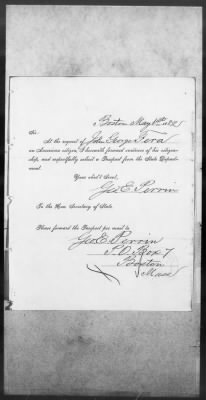 Boston May
Sir:
At the request of John George Fera
an American citizen, I herewith forward evidence of his citizen-
ship, and respectfully solicit a Passport from the State Depart-
ment.
Your obd't Serv't,
Geo E. Perrin
To the Hon. Secretary of State.
Please forward the Passport per mail to
Geo E. Perrin
P.O. Box 7
Boston
Mass